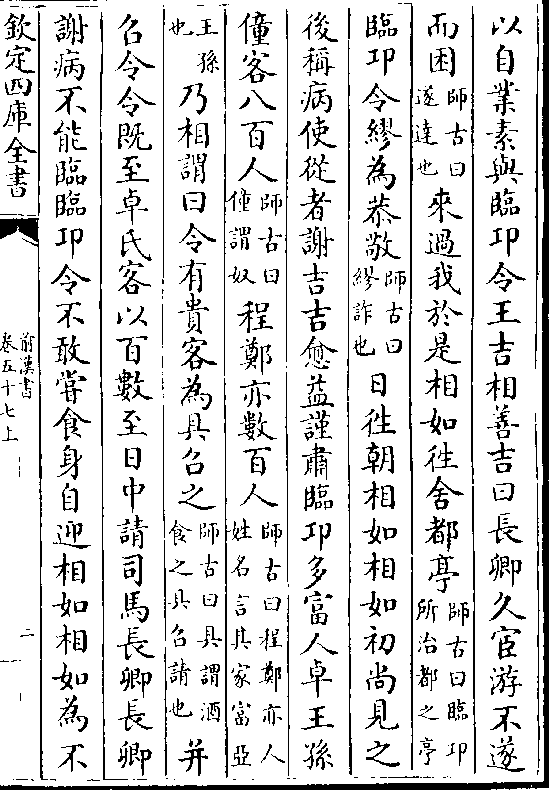 以自業素與臨卭令王吉相善吉曰長卿久宦游不遂
而困師古曰遂達也來過我於是相如往舍都亭師古曰臨卭所治都之亭
臨卭令繆為恭敬師古曰繆詐也日往朝相如相如初尚見之
後稱病使從者謝吉吉愈益謹肅臨卭多富人卓王孫
僮客八百人師古曰僮謂奴程鄭亦數百人師古曰程鄭亦人姓名言其家富亞
王孫也乃相謂曰令有貴客為具召之師古曰具謂酒食之具召請也并
召令令既至卓氏客以百數至日中請司馬長卿長卿
謝病不能臨臨卭令不敢嘗食身自迎相如相如為不
欽定四庫全書
前漢書
卷五十七上
二